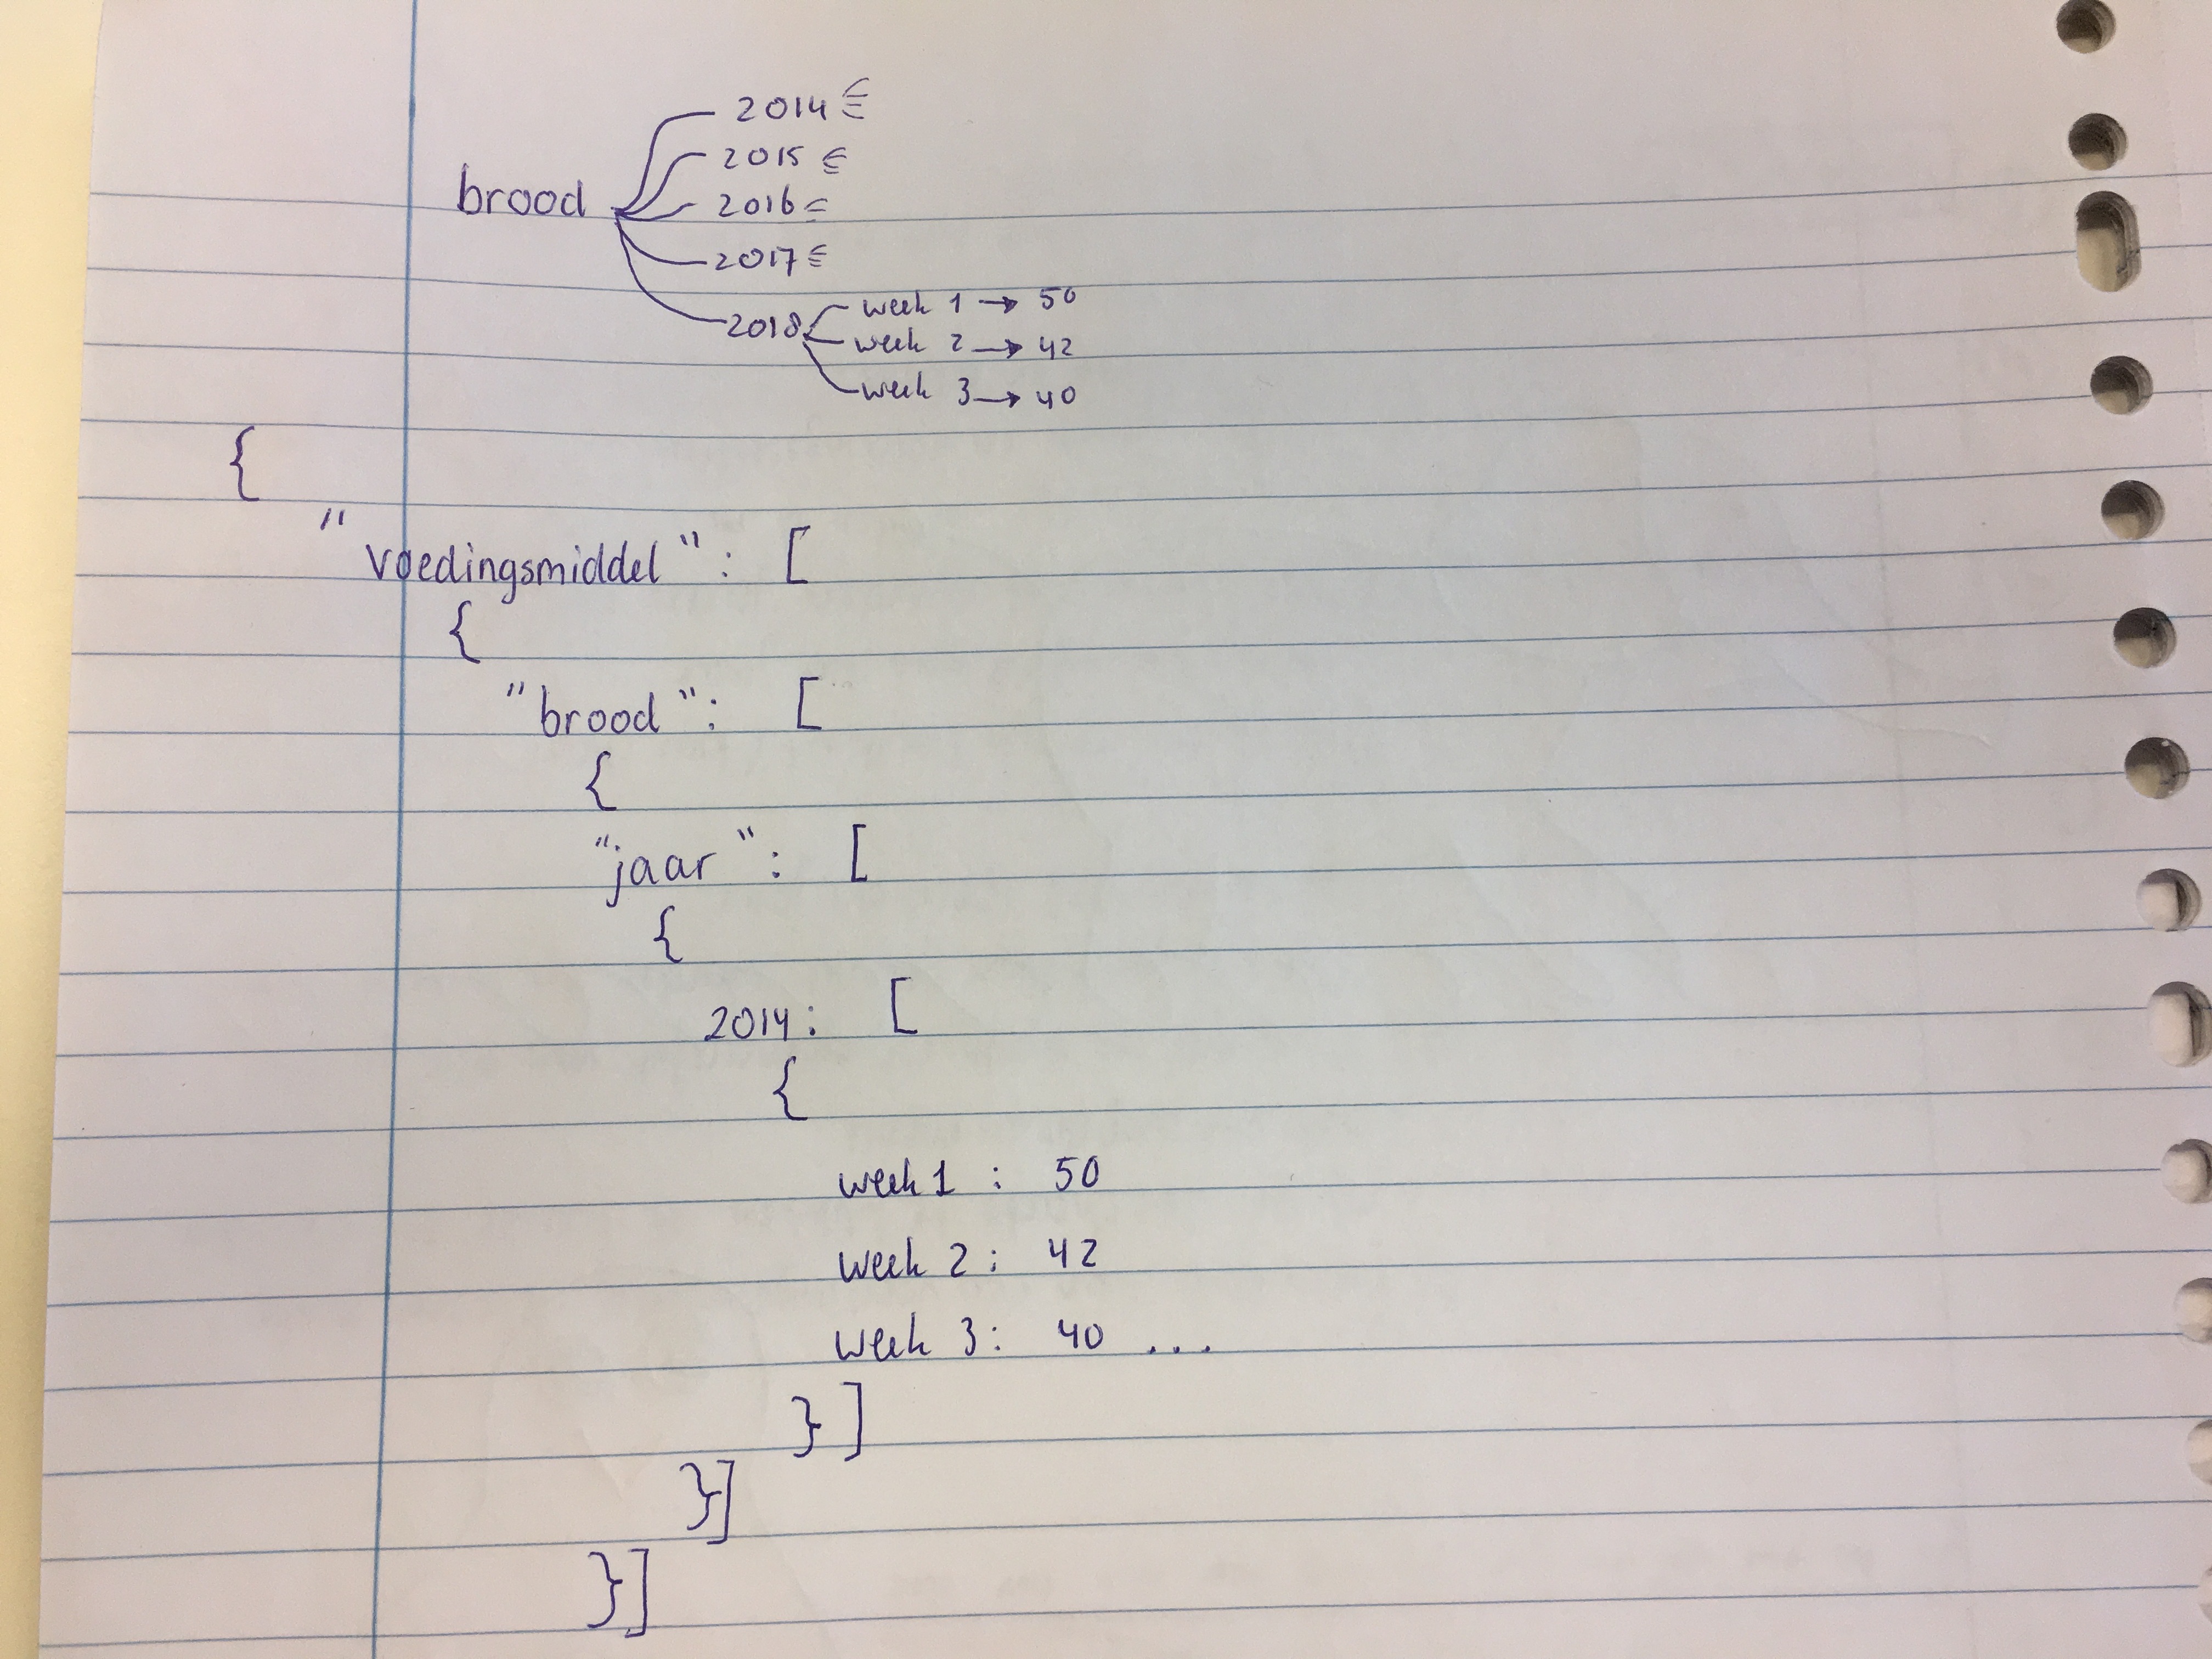 2014
2015
brood 2016
2017
2018 week 1 → 50
week 2 → 42
week 3 → 40
{
"voedingsmiddel": [
{
"brood": [
{
"jaar": [
{
2014: [
{
week 1 : 50
week 2 : 42
week 3 : 40 ...
} ]
}]
}]